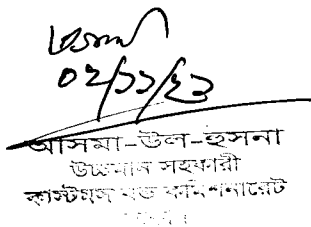 ০২/১১/২৩
আসমা-উল-হুসনা
উচ্চমান সহকারী
কাস্টমস বন্ড কমিশনারেট